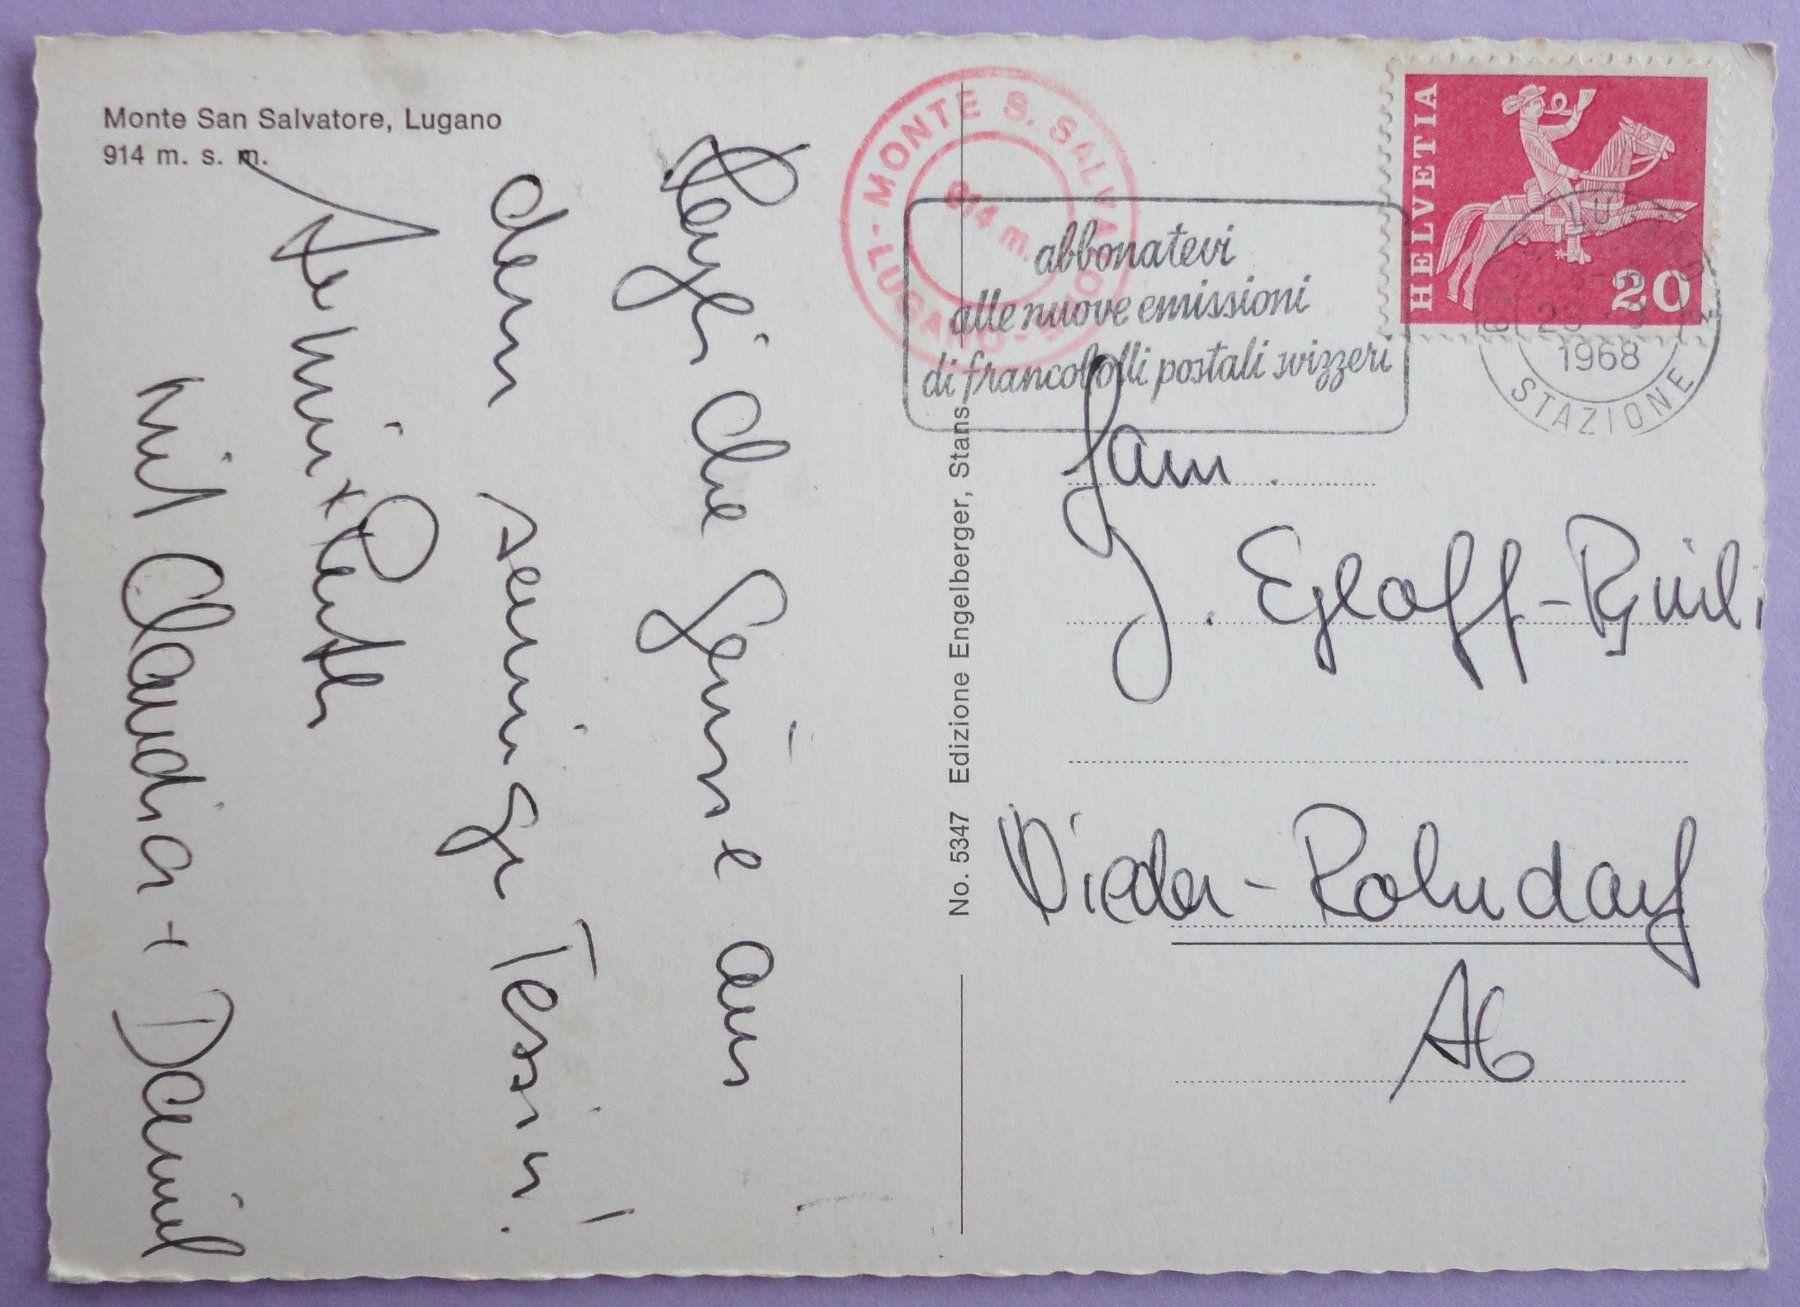 Monte San Salvatore, Lugano
914 m. s. m.
Herzliche Grüsse aus
dem sonnigen Tessin!
Armin + Ruth
mit Claudia + Daniel
No. 5347 Edizione Engelberger, Stans
MONTE S. SALVATORE
LUGANO
914 m.
abbonatevi
alle nuove emissioni
di francobolli postali svizzeri
HELVETIA
20
1968
STAZIONE
Fam.
J. Egloff-
Nieder-Rohrdorf
AG